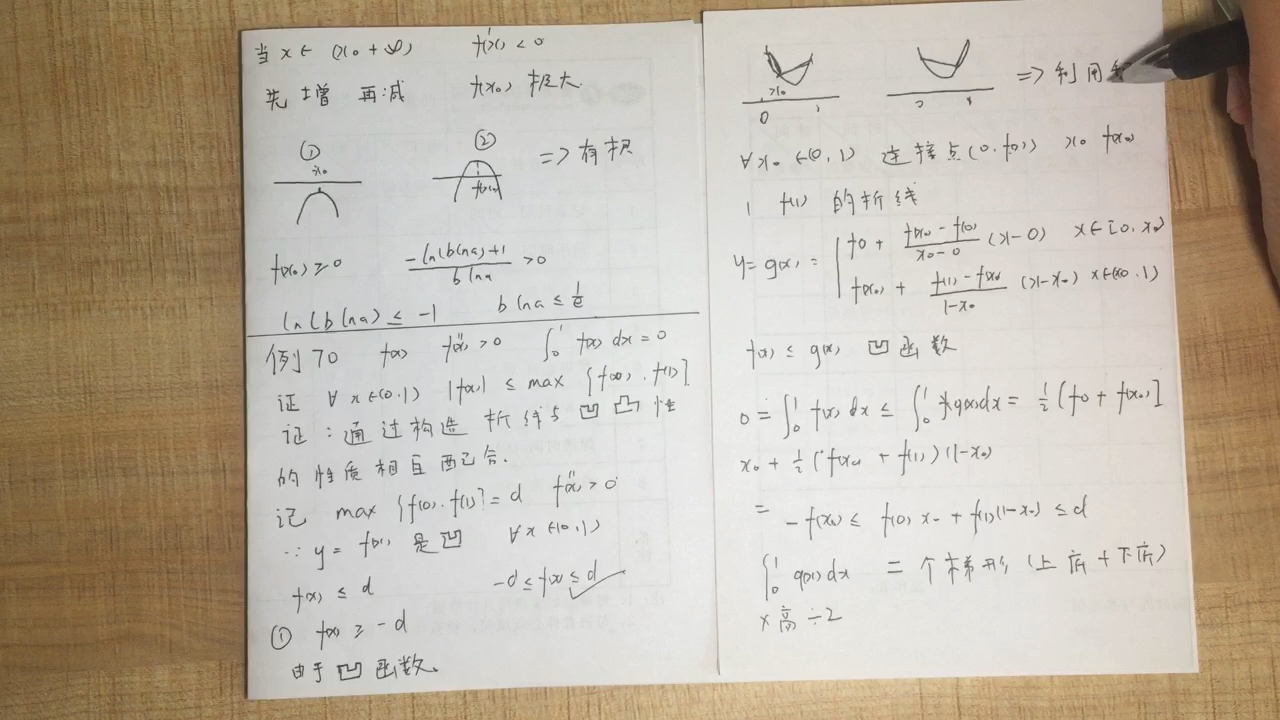 当 x∈ (x0 +∞) f'(x) < 0
先 增 再 减 f(x0) 极大
① ② ⇒ 有根
x0 f(x0)
f(x0) ≥ 0 \frac{-ln(blna)+1}{b lna} > 0
ln(blna) ≤ -1 b lna ≤ \frac{1}{e}
例 70 f(x) f''(x) > 0 ∫_0^1 f(x) dx = 0
证 ∀ x∈(0,1) |f(x)| ≤ max {f(0), f(1)}
证：通过构造 折线与凹凸性
的 性质 相互 配合.
记 max {f(0), f(1)} = d f''(x) > 0
∵ y = f(x) 是凹 ∀x∈(0,1)
f(x) ≤ d -d ≤ f(x) ≤ d
① f(x) ≥ -d
由于 凹 函数.
⇒ 利用
x0
0
∀x0 ∈(0,1) 连接点(0, f(0)) x0 f(x0)
1 f(1) 的折线
y = g(x) = { f0 + \frac{f(x0) - f(0)}{x0 - 0} (x-0) x∈[0, x0)
f(x0) + \frac{f(1) - f(x0)}{1-x0} (x-x0) x∈(x0, 1)
f(x) ≤ g(x) 凹函数
0 = ∫_0^1 f(x) dx ≤ ∫_0^1 g(x)dx = \frac{1}{2} [f0 + f(x0)]
x0 + \frac{1}{2} (f(x0) + f(1)) (1-x0)
= -f(x0) ≤ f(0) x0 + f(1)(1-x0) ≤ d
∫_0^1 g(x) dx = 个梯形 (上底+下底)
×高÷2